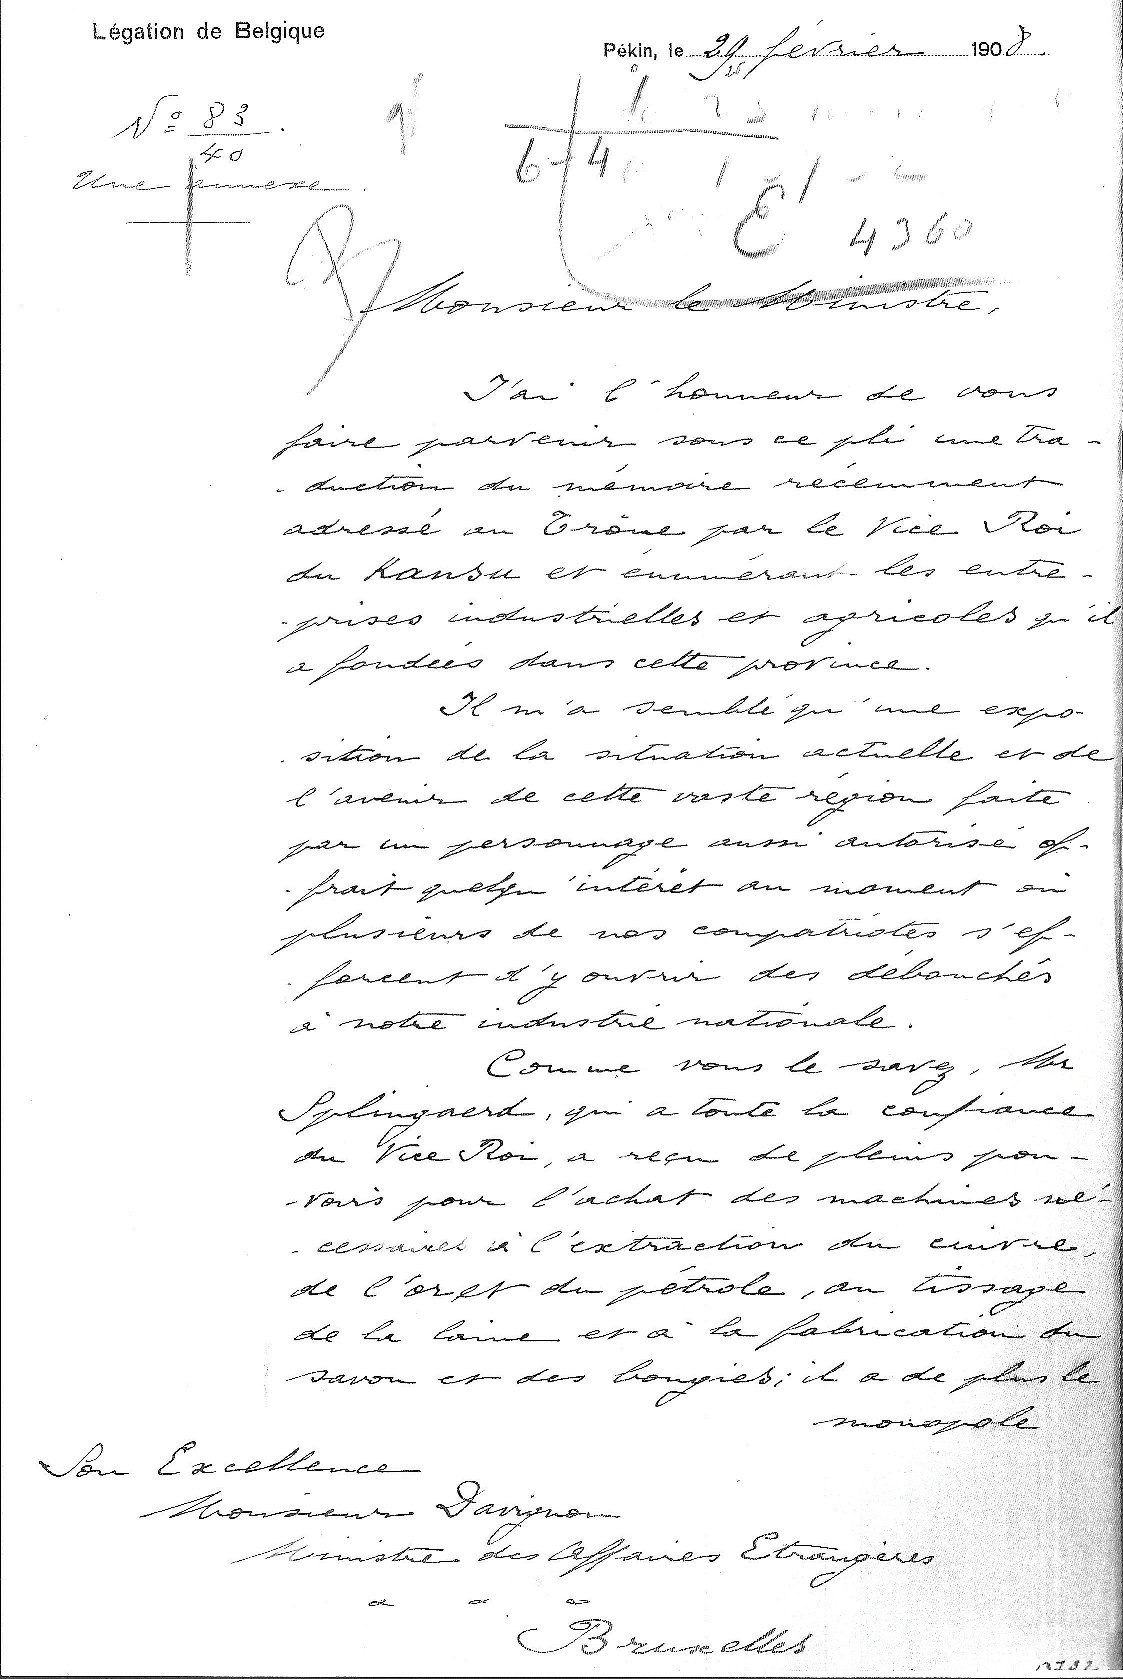 Légation de Belgique
Pékin, le 29 février 1908
N° 83
40
Une annexe.
6 4
E 4360
Monsieur le Ministre,
J'ai l'honneur de vous
faire parvenir sous ce pli une tra-
-duction du mémoire récemment
adressé au Trône par le Vice Roi
du Kansu et énumérant les entre-
-prises industrielles et agricoles qu'il
a fondées dans cette province.
Il m'a semblé qu'une expo-
-sition de la situation actuelle et de
l'avenir de cette vaste région faite
par un personnage aussi autorisé of-
-frait quelqu'intérêt au moment où
plusieurs de nos compatriotes s'ef-
-forcent d'y ouvrir des débouchés
à notre industrie nationale.
Comme vous le savez, Mr
Splingaerd, qui a toute la confiance
du Vice Roi, a reçu de pleins pou-
-voirs pour l'achat des machines né-
-cessaires à l'extraction du cuivre,
de l'or et du pétrole, au tissage
de la laine et à la fabrication du
savon et des bougies; il a de plus le
monopole
Son Excellence
Monsieur Davignon
Ministre des Affaires Etrangères
à à à
Bruxelles